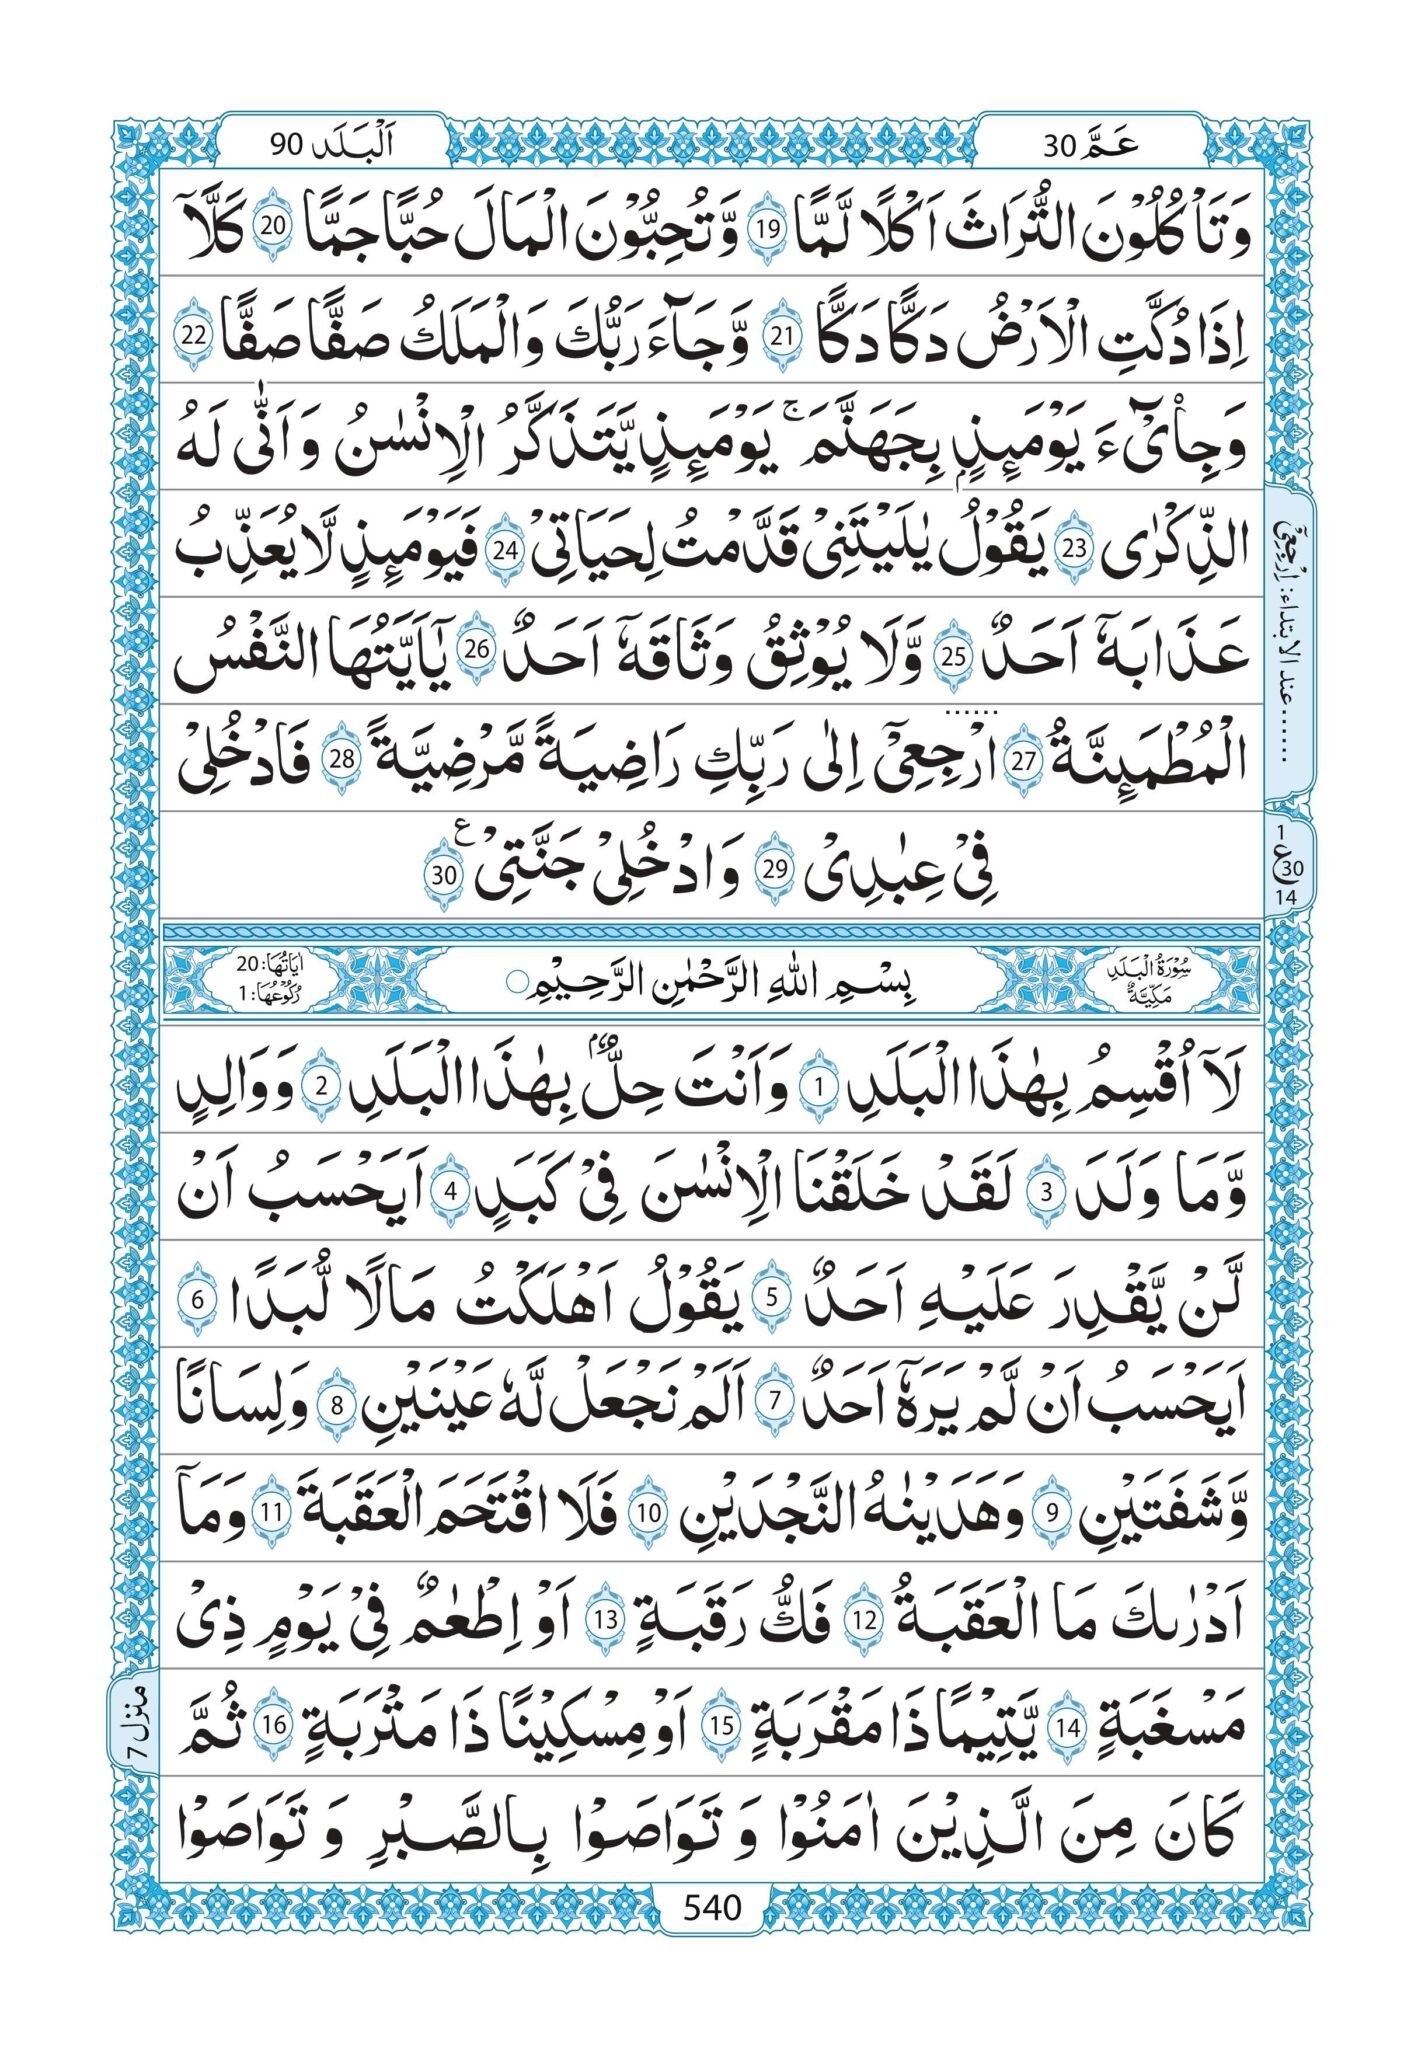 عَمَّ 30
اَلْبَلَد 90
وَتَاْكُلُوْنَ التُّرَاثَ اَكْلًا لَّمًّا 19 وَّتُحِبُّوْنَ الْمَالَ حُبًّا جَمًّا 20 كَلَّآ
اِذَا دُكَّتِ الْاَرْضُ دَكًّا دَكًّا 21 وَّجَآءَ رَبُّكَ وَالْمَلَكُ صَفًّا صَفًّا 22
وَجِايْٓءَ يَوْمَئِذٍۭ بِجَهَنَّمَ ۚ يَوْمَئِذٍ يَّتَذَكَّرُ الْاِنْسٰنُ وَاَنّٰى لَهُ
الذِّكْرٰى 23 يَقُوْلُ يٰلَيْتَنِىْ قَدَّمْتُ لِحَيَاتِىْ 24 فَيَوْمَئِذٍ لَّا يُعَذِّبُ
عَذَابَهٗٓ اَحَدٌ 25 وَّلَا يُوْثِقُ وَثَاقَهٗٓ اَحَدٌ 26 يٰٓاَيَّتُهَا النَّفْسُ
الْمُطْمَئِنَّةُ 27 ارْجِعِىْٓ اِلٰى رَبِّكِ رَاضِيَةً مَّرْضِيَّةً 28 فَادْخُلِىْ
فِىْ عِبٰدِىْ 29 وَادْخُلِىْ جَنَّتِىْ ع 30
......عند الابتداء: اِرْجِعِىْٓ
1
ع 30
14
سُوْرَةُ الْبَلَدِ مَكِّيَّةٌ
بِسْمِ اللهِ الرَّحْمٰنِ الرَّحِيْمِ
اٰيَاتُهَا: 20
رُكُوْعُهَا: 1
لَآ اُقْسِمُ بِهٰذَا الْبَلَدِ 1 وَاَنْتَ حِلٌّۢ بِهٰذَا الْبَلَدِ 2 وَوَالِدٍ
وَّمَا وَلَدَ 3 لَقَدْ خَلَقْنَا الْاِنْسٰنَ فِىْ كَبَدٍ 4 اَيَحْسَبُ اَنْ
لَّنْ يَّقْدِرَ عَلَيْهِ اَحَدٌ 5 يَقُوْلُ اَهْلَكْتُ مَالًا لُّبَدًا 6
اَيَحْسَبُ اَنْ لَّمْ يَرَهٗٓ اَحَدٌ 7 اَلَمْ نَجْعَلْ لَّهٗ عَيْنَيْنِ 8 وَلِسَانًا
وَّشَفَتَيْنِ 9 وَهَدَيْنٰهُ النَّجْدَيْنِ 10 فَلَا اقْتَحَمَ الْعَقَبَةَ 11 وَمَآ
اَدْرٰىكَ مَا الْعَقَبَةُ 12 فَكُّ رَقَبَةٍ 13 اَوْ اِطْعٰمٌ فِىْ يَوْمٍ ذِىْ
مَسْغَبَةٍ 14 يَّتِيْمًا ذَا مَقْرَبَةٍ 15 اَوْ مِسْكِيْنًا ذَا مَتْرَبَةٍ 16 ثُمَّ
كَانَ مِنَ الَّذِيْنَ اٰمَنُوْا وَتَوَاصَوْا بِالصَّبْرِ وَتَوَاصَوْا
منزل 7
540